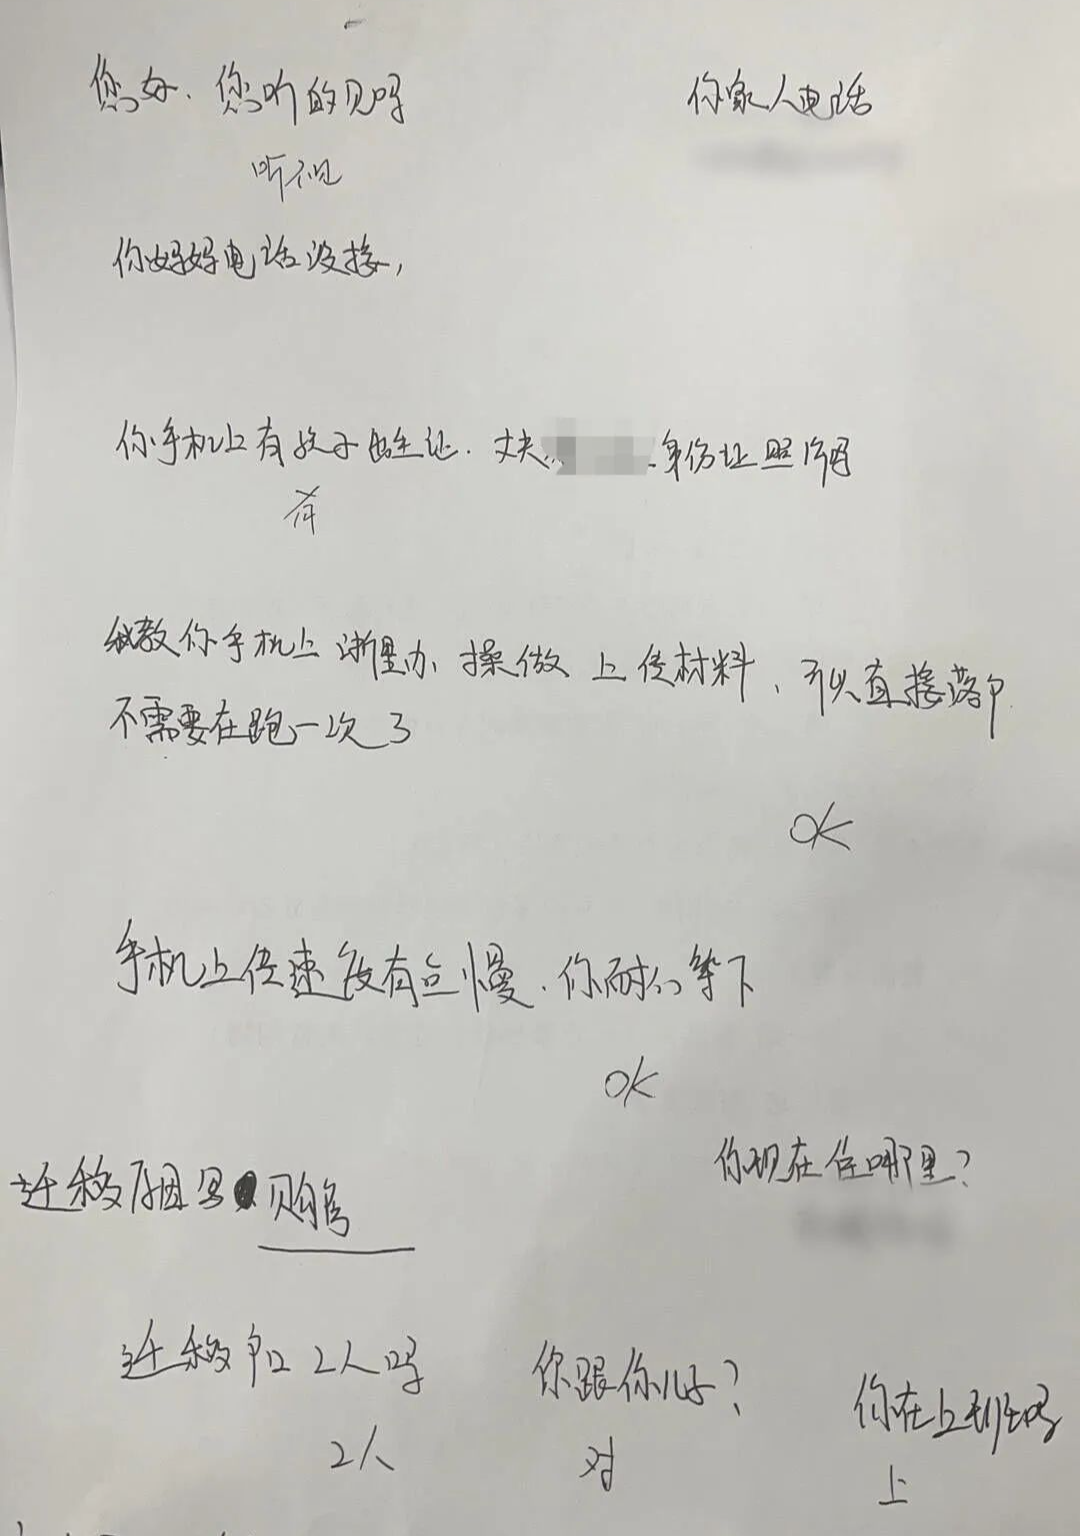 您好.您听的见吗
你家人电话
听不见
你妈妈电话没接,
你手机上有孩子出生证.丈夫 身份证照片吗
有
我教你手机上 浙里办 操做 上传材料、可以直接落户
不需要在跑一次了
OK
手机上传速度有点慢.你耐心等下
OK
你现在住哪里?
迁移原因写 购房
迁移户口2人吗
你跟你儿子?
你在上班吗
2人
对
上